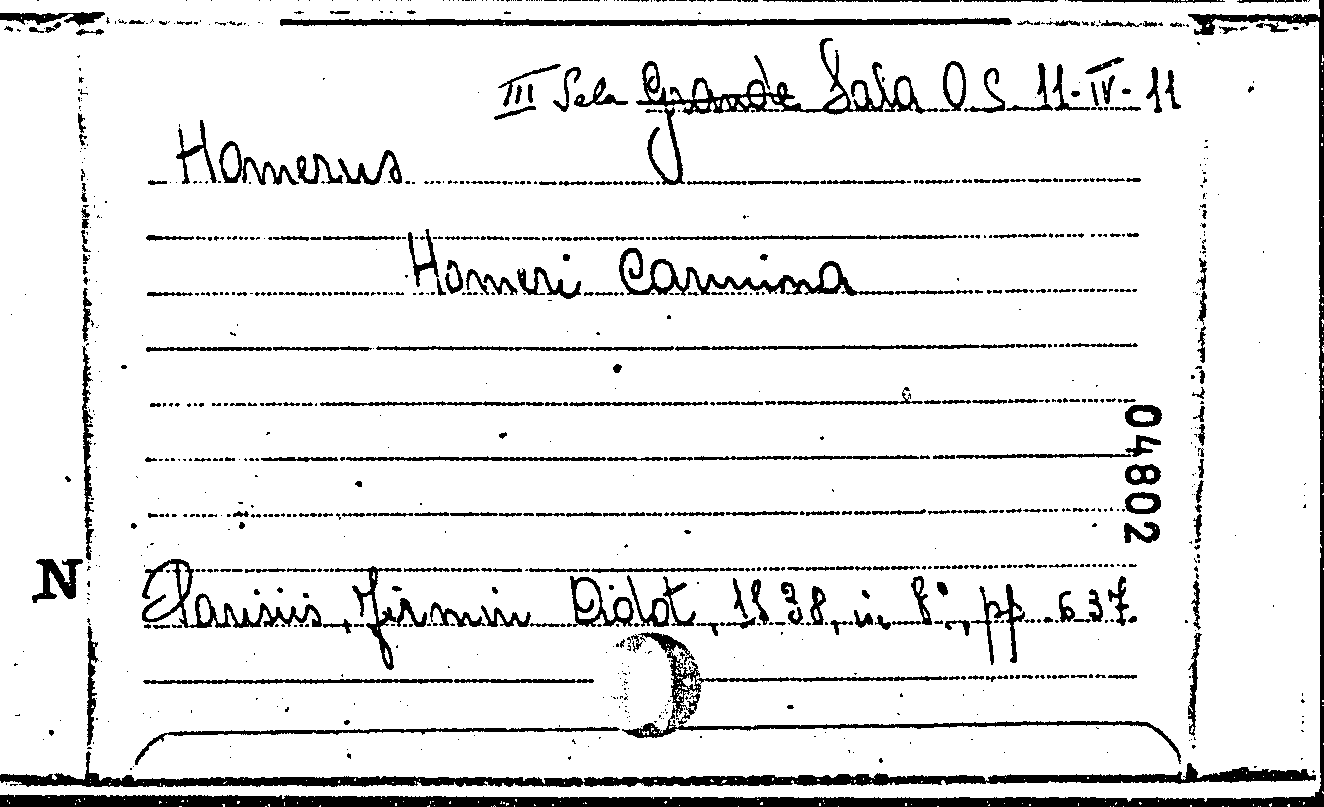 III Sala Grande Sala O S 11-IV-11
Homerus
Homeri Carmina
04802
N
Parisiis, Firmin Didot, 1838, in 8°, pp. 637.